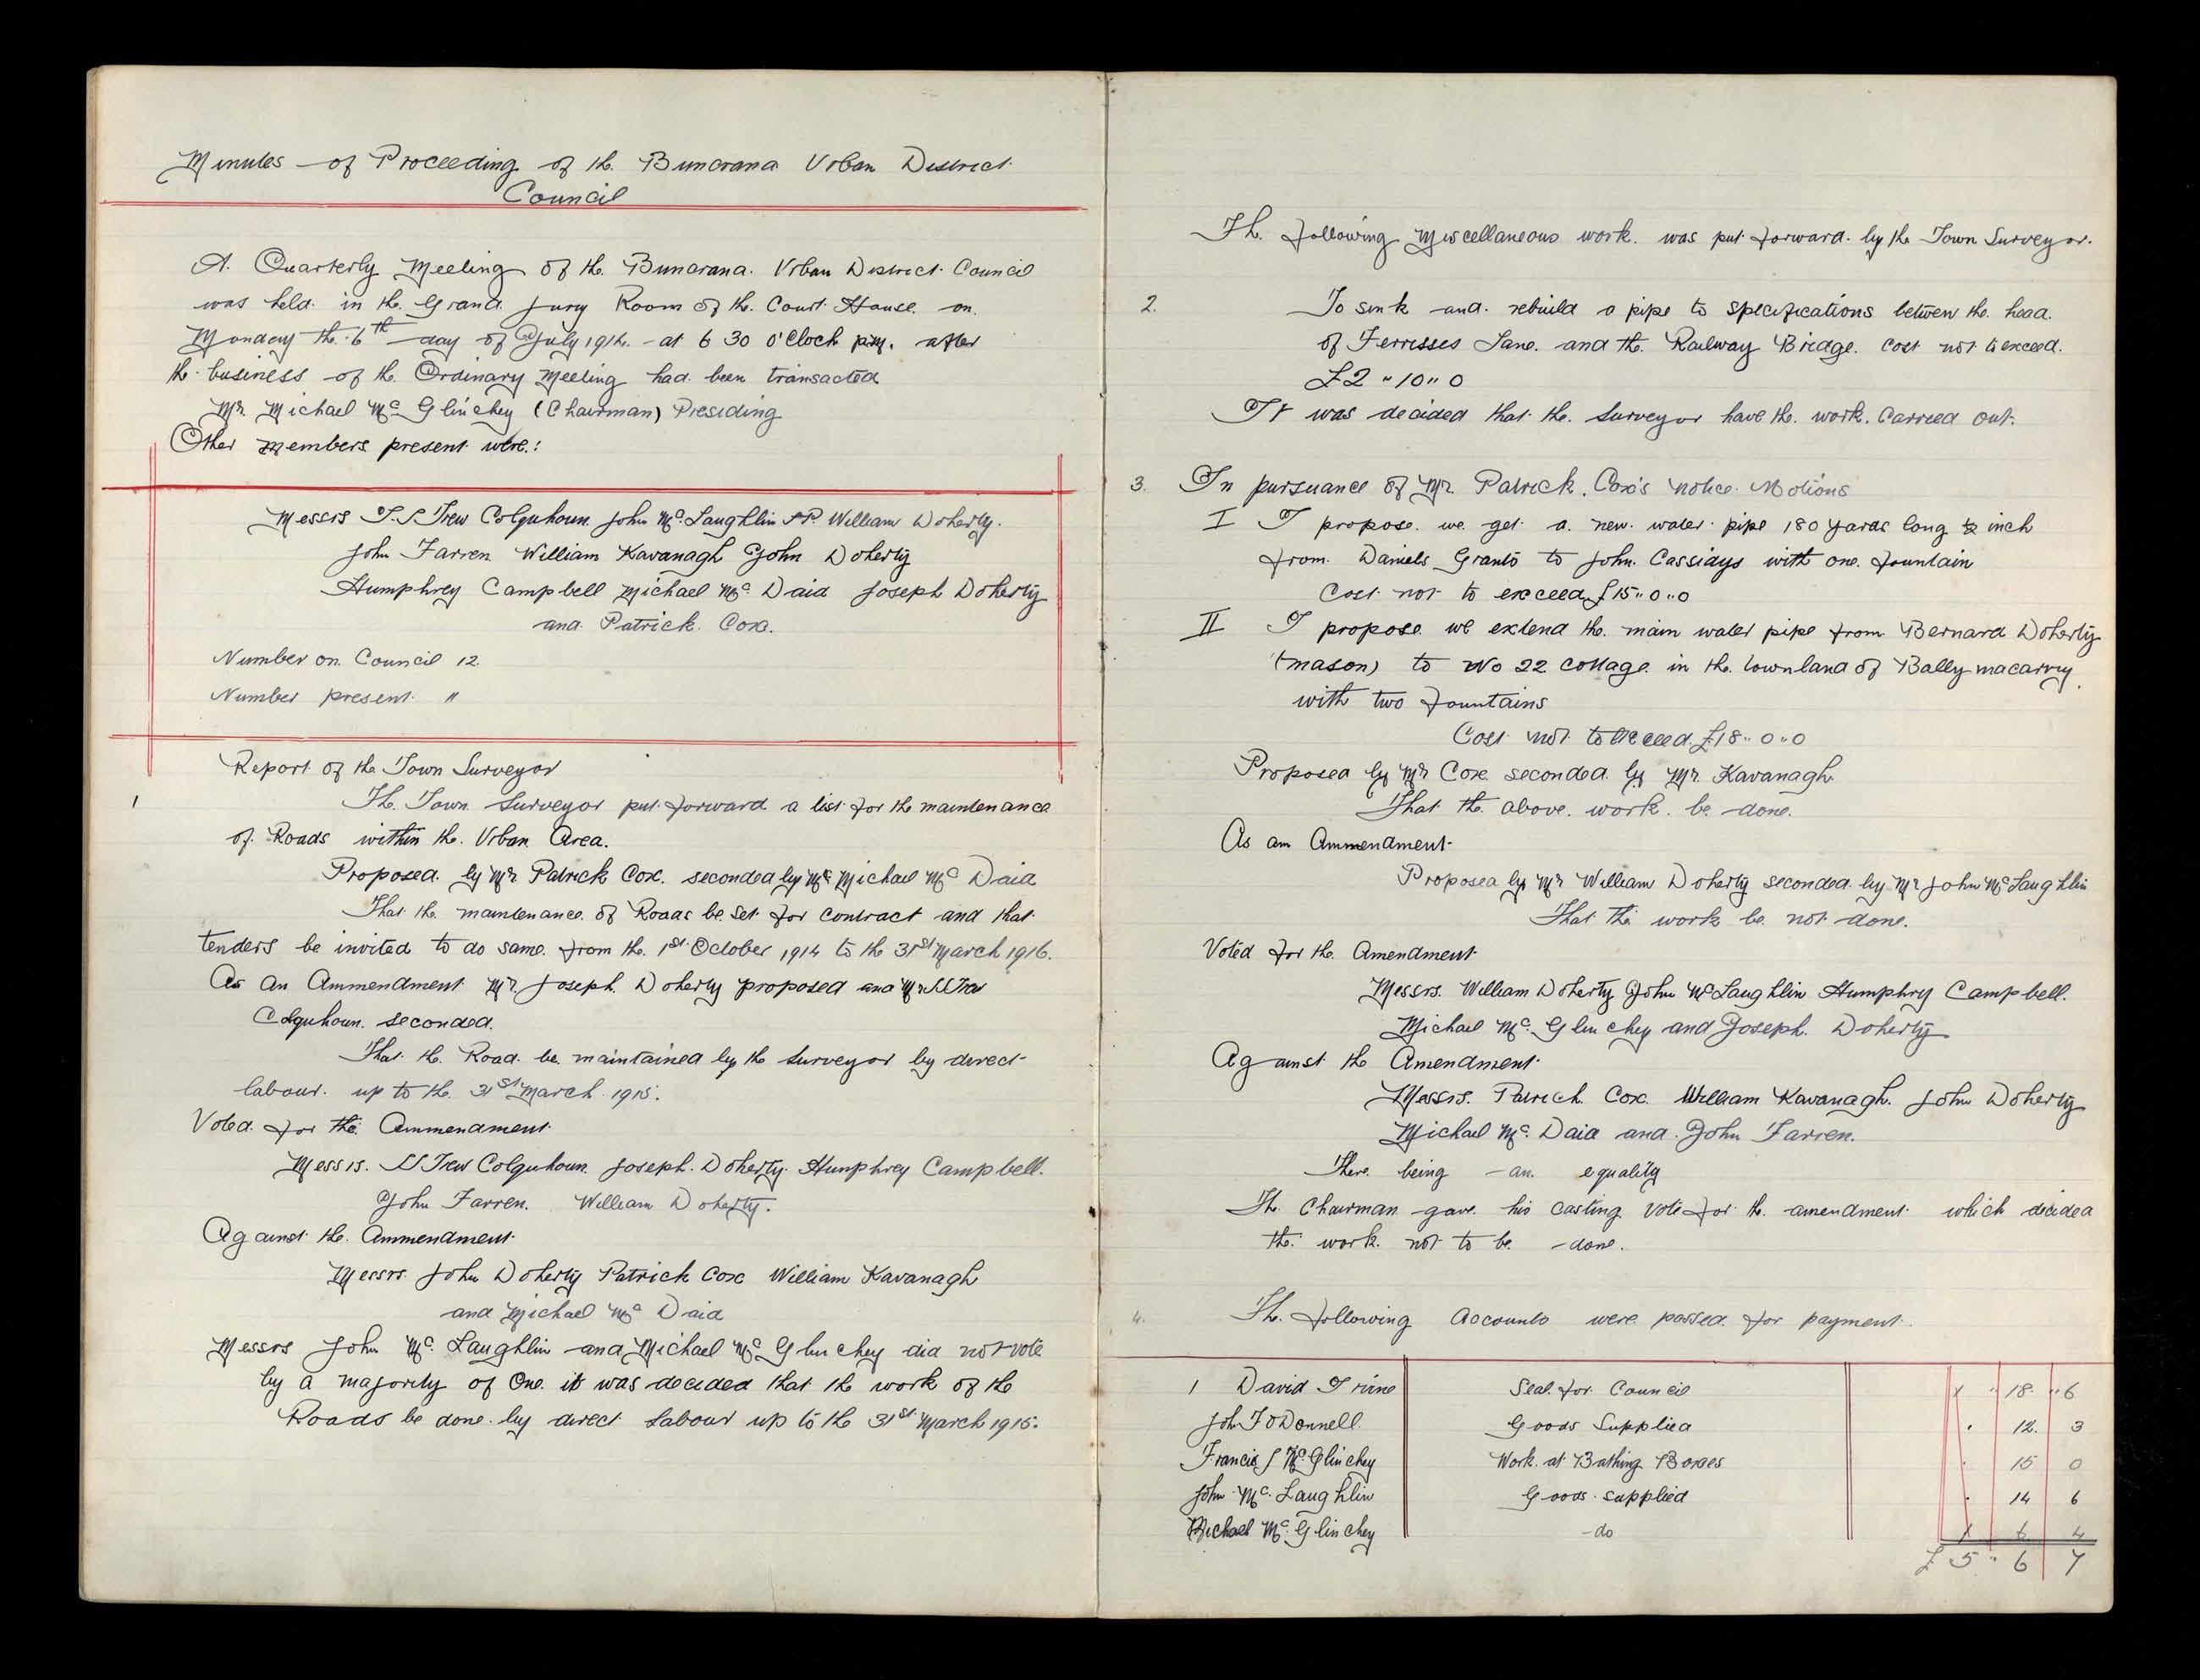 Minutes of Proceeding of the Buncrana Urban District
Council
A Quarterly Meeting of the Buncrana Urban District Council
was held in the Grand Jury Room of the Court House on
Monday the 6th day of July 1914 at 6 30 o'Clock pm. after
the business of the Ordinary Meeting had been transacted
Mr Michael Mc Glinchey (Chairman) Presiding
Other members present were:
Messrs Trew Colquhoun John Mc Laughlin J.P. William Doherty.
John Farren William Kavanagh John Doherty
Humphrey Campbell Michael Mc Daid Joseph Doherty
and Patrick Cox.
Number on Council 12
Number present 11
Report of the Town Surveyor
1 The Town Surveyor put forward a list for the maintenance
of Roads within the Urban Area.
Proposed by Mr Patrick Cox. seconded by Mr Michael Mc Daid
That the maintenance of Roads be set for contract and that
tenders be invited to do same from the 1st October 1914 to the 31st March 1916.
As an Ammendment Mr. Joseph Doherty proposed and Mr Trew
Colquhoun seconded.
That the Road be maintained by the Surveyor by direct
labour up to the 31st March 1915.
Voted for the Ammendment
Messrs. Trew Colquhoun Joseph Doherty Humphrey Campbell.
John Farren. William Doherty.
Against the Ammendment
Messrs John Doherty Patrick Cox William Kavanagh
and Michael Mc Daid
Messrs John Mc Laughlin and Michael Mc Glinchey did not vote
by a majority of One it was decided that the work of the
Roads be done by direct labour up to the 31st March 1915.
The following Miscellaneous work was put forward by the Town Surveyor.
2. To sink and rebuild a pipe to specifications between the head
of Ferrisses Lane and the Railway Bridge. Cost not to exceed.
£2 " 10 " 0
It was decided that the Surveyor have the work carried out.
3. In pursuance of Mr Patrick Cox's notice Motions
I I propose we get a new water pipe 180 yards long ½ inch
from Daniels Grants to John Cassidys with one fountain
Cost not to exceed £15 " 0 " 0
II I propose we extend the main water pipe from Bernard Doherty
(mason) to No 22 Cottage in the townland of Ballymacarry
with two fountains
Cost not to exceed £18 " 0 " 0
Proposed by Mr Cox seconded by Mr Kavanagh
That the above work be done.
As an Ammendment
Proposed by Mr William Doherty seconded by Mr John Mc Laughlin
That the work be not done.
Voted for the Amendment
Messrs. William Doherty John Mc Laughlin Humphry Campbell.
Michael Mc Glinchey and Joseph Doherty
Against the Amendment
Messrs. Patrick Cox William Kavanagh John Doherty
Michael Mc Daid and John Farren.
There being an equality
The Chairman gave his casting vote for the amendment which decided
the work not to be done.
4. The following Accounts were passed for payment
1 David Irvine Seal for Council 1 " 18 " 6
John F O'Donnell Goods Supplied " 12 3
Francis J Mc Glinchey Work at Bathing Boxes " 15 0
John Mc Laughlin Goods supplied " 14 6
Michael Mc Glinchey do 1 6 4
£ 5 " 6 7